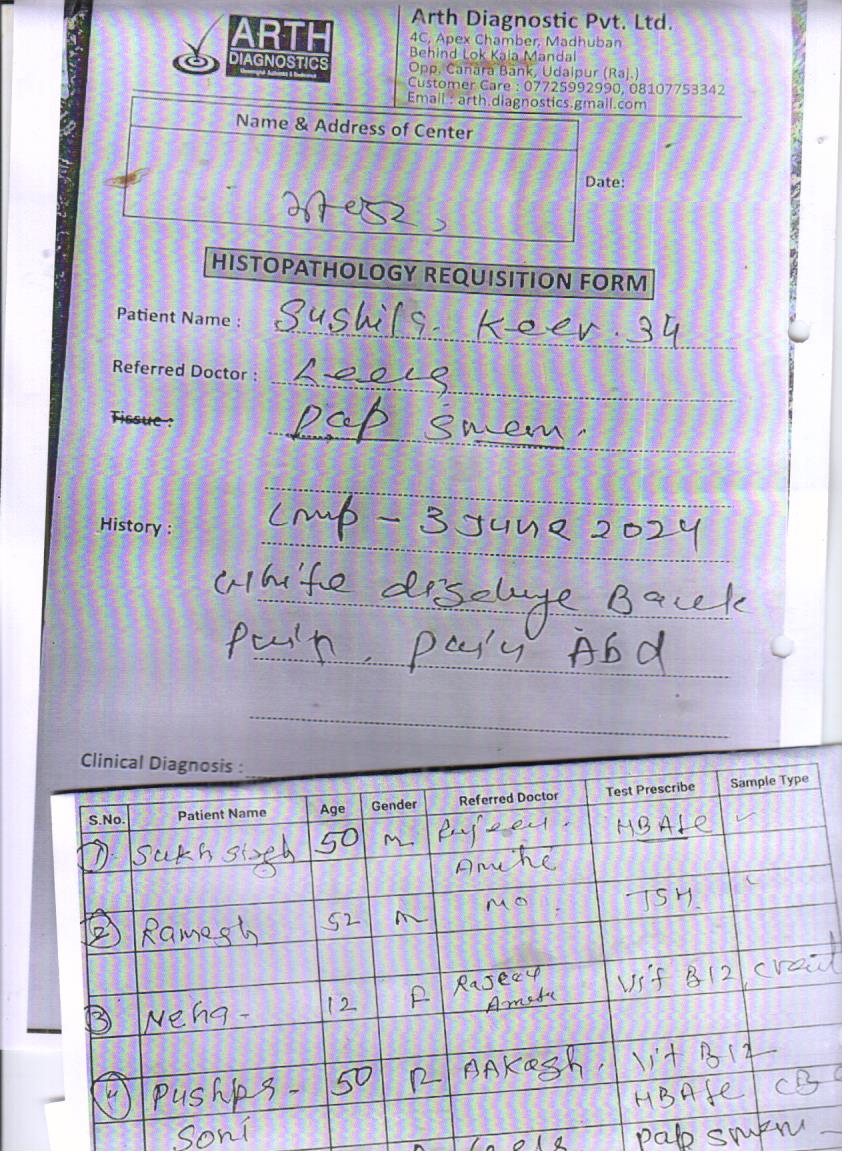 ARTH
DIAGNOSTICS
Arth Diagnostic Pvt. Ltd.
4C, Apex Chamber, Madhuban
Behind Lok Kala Mandal
Opp. Canara Bank, Udaipur (Raj.)
Customer Care : 07725992990, 08107753342
Email : arth.diagnostics.gmail.com
Name & Address of Center
Date:
HISTOPATHOLOGY REQUISITION FORM
Patient Name : Sushila Keer . 34
Referred Doctor : Leela
Tissue : Pap smem .
History : LMP - 3 June 2024
white dischge Back
Pain . Pain Abd
Clinical Diagnosis :
S.No. Patient Name Age Gender Referred Doctor Test Prescribe Sample Type
1 Sukh singh 50 M HBA1c
2 Ramesh 52 M MO TSH
3 Neha - 12 F Rajeev Vit B12
Ameta
4 Pushpa - 50 F AAKash . Vit B12
Soni HBA1c CB
Leela Pap smem